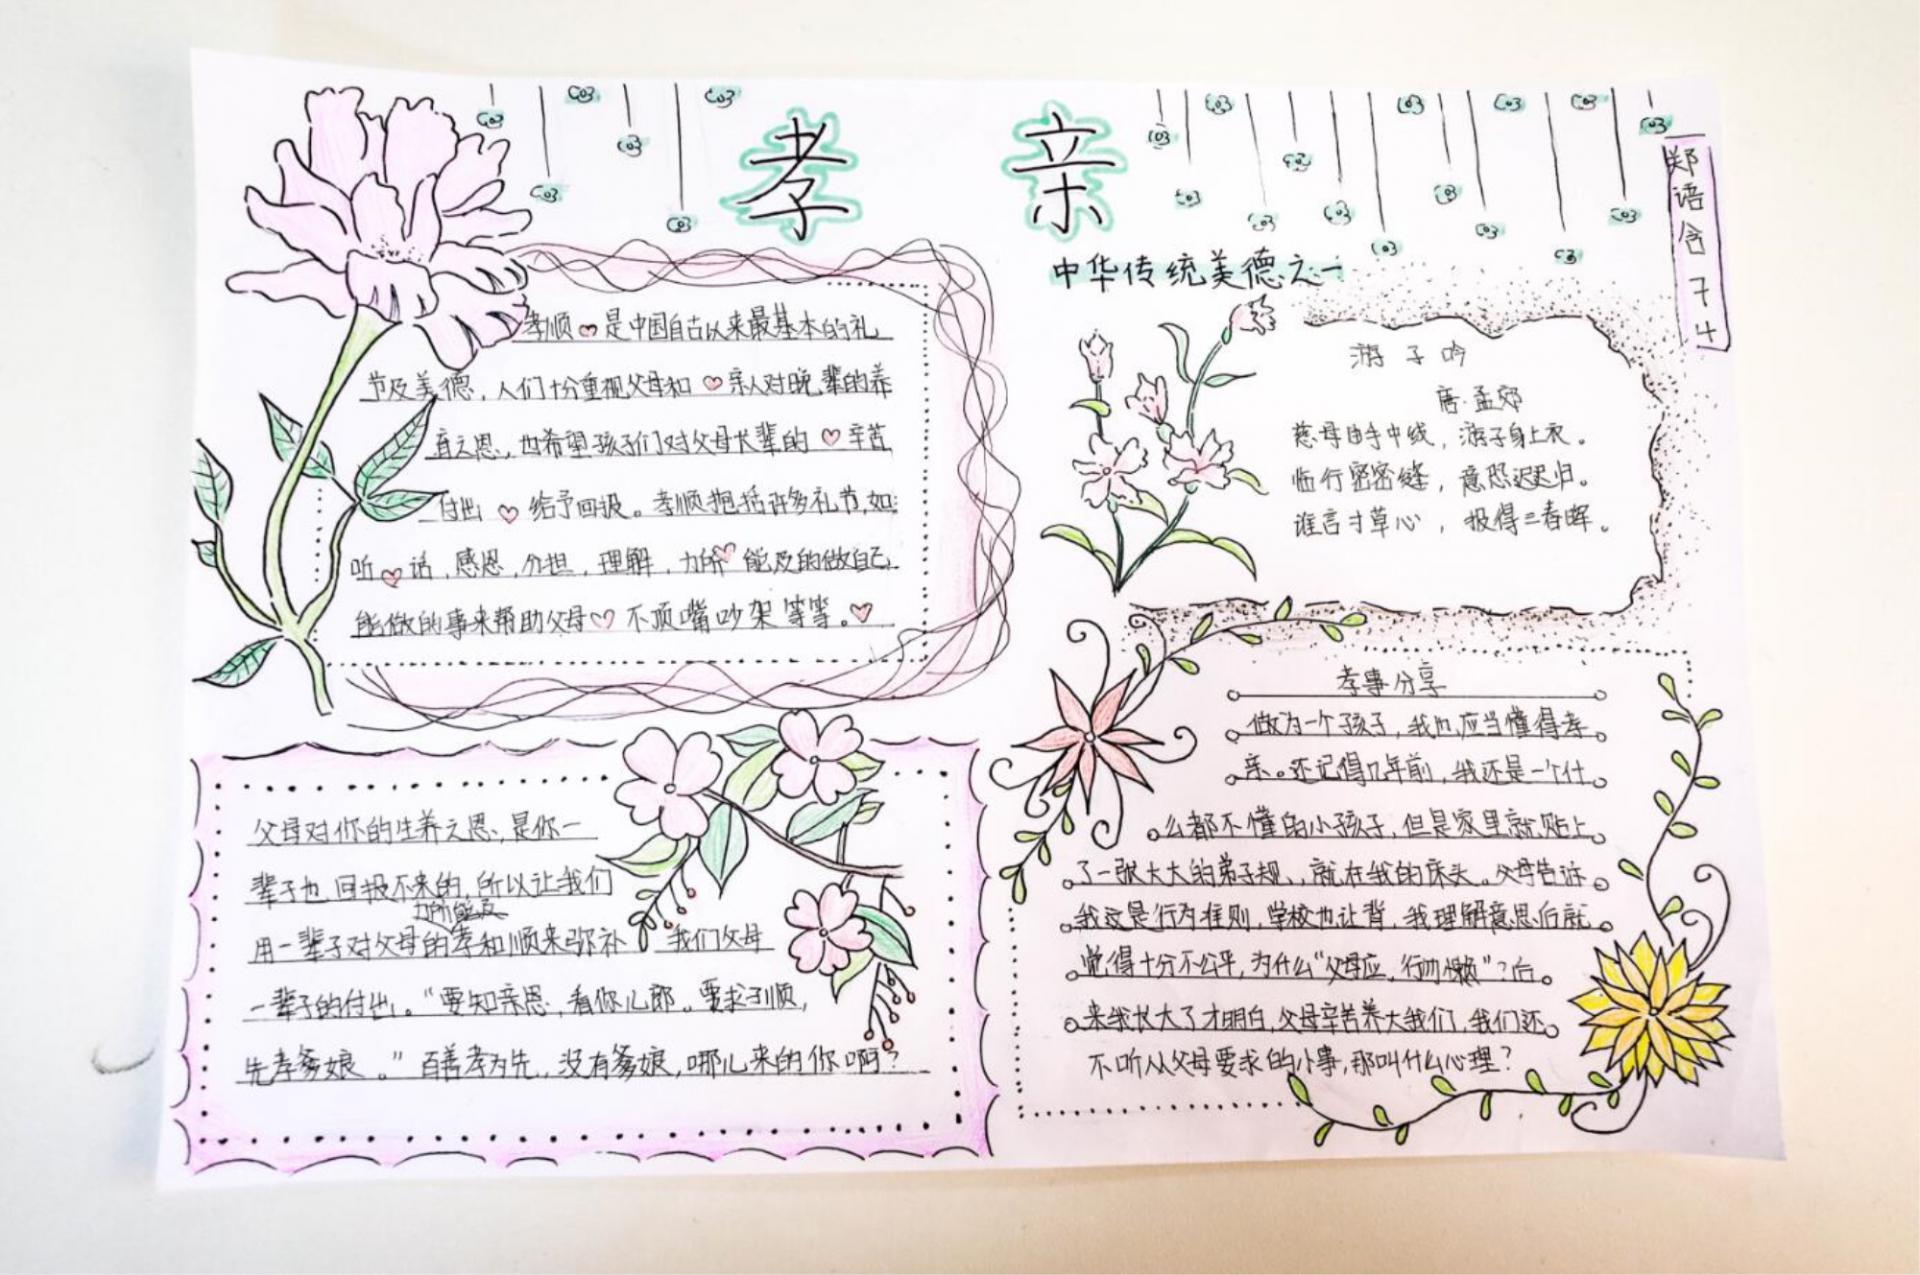 孝亲
中华传统美德之一
郑语含 74
孝顺是中国自古以来最基本的礼
节及美德，人们十分重视父母和亲人对晚辈的养
育之恩，也希望孩子们对父母长辈的辛苦
付出给予回报。孝顺抱括许多礼节，如：
听话，感恩，分担，理解，力所能及的做自己
能做的事来帮助父母不顶嘴吵架等等。
游子吟
唐·孟郊
慈母由手中线，游子身上衣。
临行密密缝，意恐迟迟归。
谁言寸草心，报得三春晖。
父母对你的生养之恩，是你一
辈子也回报不来的，所以让我们
力所能及
用一辈子对父母的孝和顺来弥补我们父母
一辈子的付出。“要知亲恩，看你儿郎。要求子顺，
先孝爹娘。”百善孝为先，没有爹娘，哪儿来的你啊？
孝事分享
做为一个孩子，我也应当懂得孝
亲。还记得几年前，我还是一个什
么都不懂的小孩子，但是家里就贴上
了一张大大的弟子规，就在我的床头。父母告诉
我这是行为准则，学校也让背，我理解意思后就
觉得十分不公平，为什么“父母应，行勿懒”？后
来我长大了才明白，父母辛苦养大我们，我们还
不听从父母要求的小事，那叫什么心理？